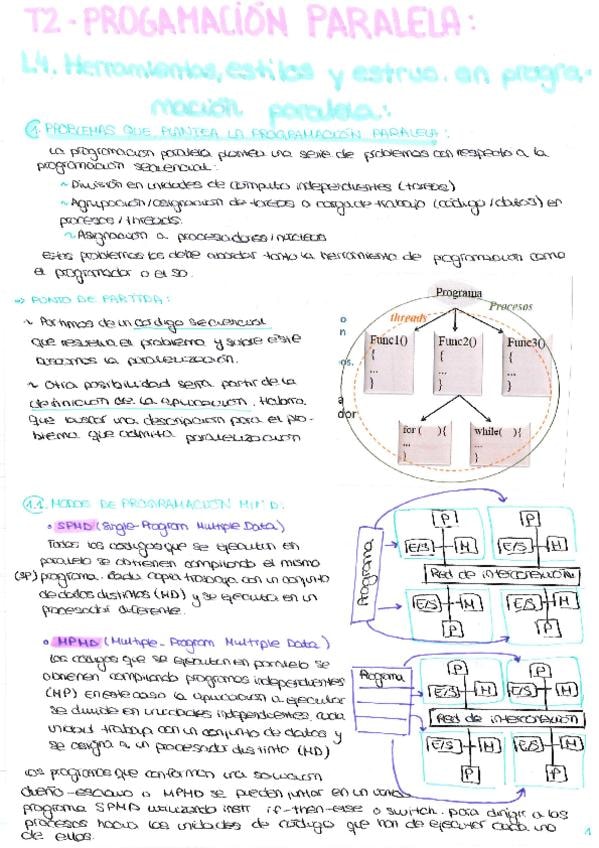 T2-PROGAMACIÓN PARALELA:
L4. Herramientas, estilos y estruc. en progra-
mación paralela:
1. PROBLEMAS QUE PLANTEA LA PROGRAMACIÓN PARALELA:
La programación paralela plantea una serie de problemas con respecto a la
programación secuencial:
~ División en unidades de cómputo independientes (tareas)
~ Agrupación/asignación de tareas o carga de trabajo (código/datos) en
procesos/threads.
~ Asignación a procesadores/núcleos
Estos problemas los debe abordar tanto la herramienta de programación como
el programador o el SO.
⇒ PUNTO DE PARTIDA:
~ Partimos de un código secuencial
que resuelva el problema y sobre este
buscamos la paralelización.
~ Otra posibilidad seria partir de la
definición de la aplicación. Habría
que buscar una descripción para el pro-
blema que admita paralelización
Programa
Procesos
threads
Func1() Func2() Func3()
{ { {
... ... ...
} } }
for ( ){ while( ){
... ...
} }
o
n
os.
a
dor
1.1. MODOS DE PROGRAMACIÓN MIMD:
• SPMD (Single-Program Multiple Data)
Todos los códigos que se ejecutan en
paralelo se obtienen compilando el mismo
(SP) programa. Cada copia trabaja con un conjunto
de datos distintos (MD) y se ejecuta en un
procesador diferente.
Programa
P P
E/S M E/S M
Red de interconexión
E/S M E/S M
P P
• MPMD (Multiple-Program Multiple Data)
Los códigos que se ejecutan en paralelo se
obtienen compilando programas independientes
(MP) en este caso la aplicación a ejecutar
se divide en unidades independientes. Cada
unidad trabaja con un conjunto de datos y
se asigna a un procesador distinto (MD)
Programa
P P
E/S M E/S M
Red de interconexión
E/S M E/S M
P P
Los programas que conforman una solución
dueño-esclavo o MPMD se pueden juntar en un
programa SPMD utilizando instr. if-then-else o switch. para dirigir a los
procesos hacia las unidades de código que han de ejecutar cada uno
de ellos.
1